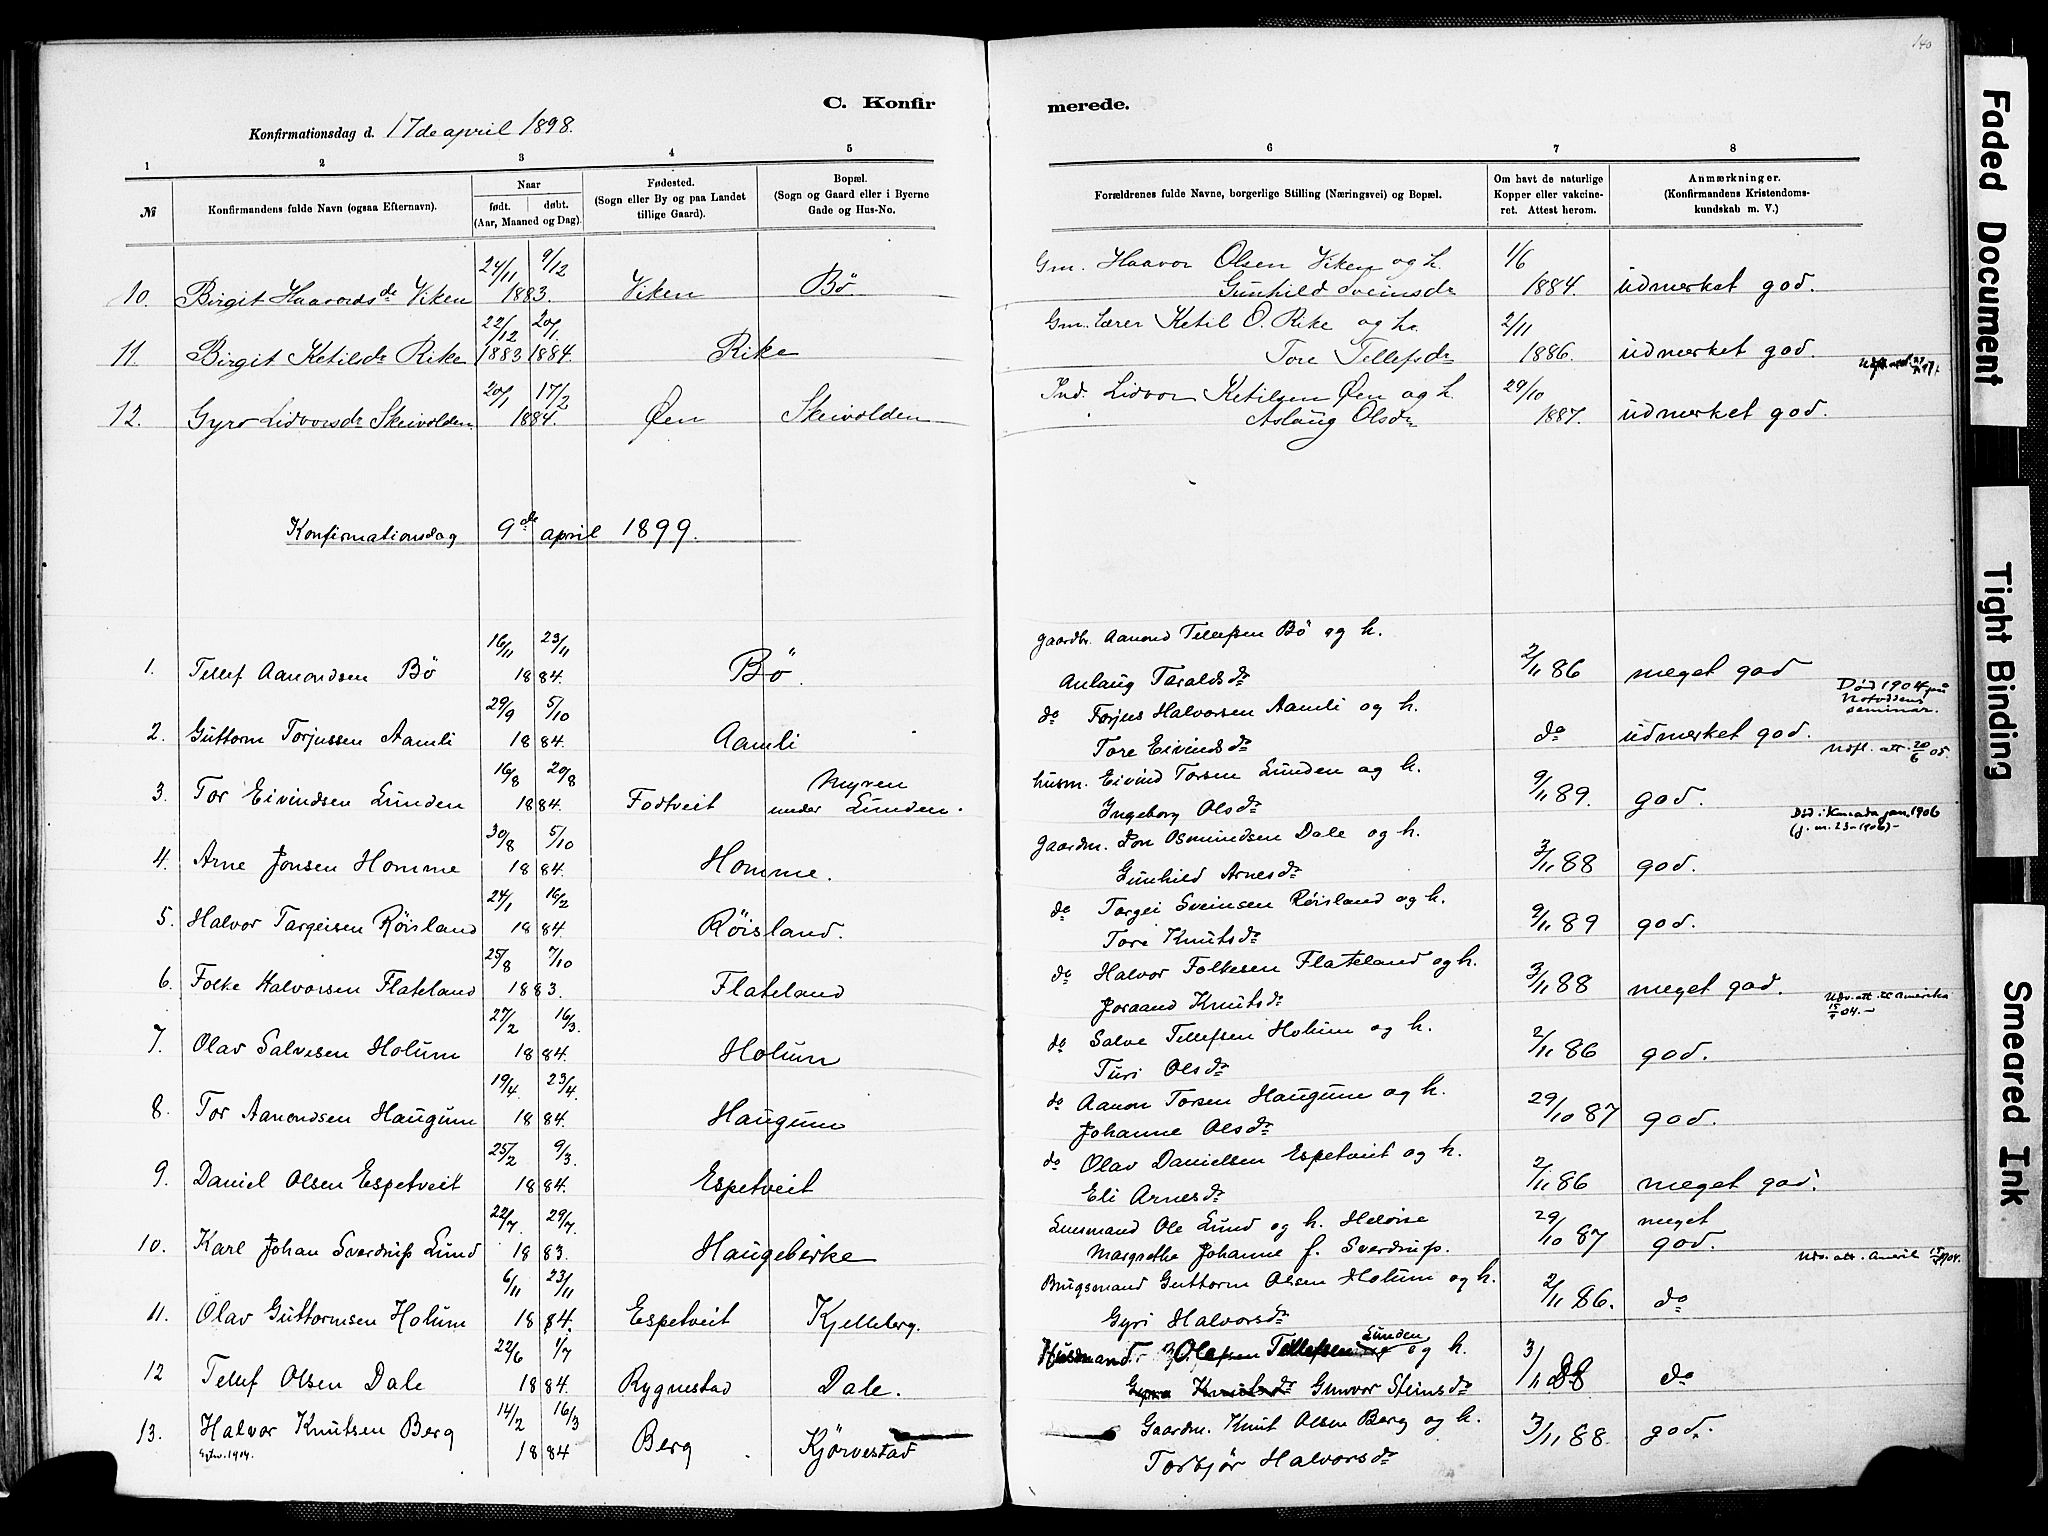 140
C. Konfir merede.
Konfirmationsdag d. 17de april 1898.
1 2 3 4 5 6 7 8
№ Konfirmandens fulde Navn (ogsaa Efternavn). Naar født. døbt. (Aar, Maaned og Dag). Fødested. (Sogn eller By og paa Landet tillige Gaard). Bopæl. (Sogn og Gaard eller i Byerne Gade og Hus-No. Forældrenes fulde Navne, borgerlige Stilling (Næringsvei) og Bopæl. Om havt de naturlige Kopper eller vakcineret. Attest herom. Anmærkninger. (Konfirmandens Kristendomskundskab m. V.)
24/11 9/12 Gm. Haavor Olsen Viken og h. 1/6
10. Birgit Haavordsdr Viken 1883. Viken Bø Gunhild Sveinsdr 1884. udmerket god.
22/12 20/1 Gm. lærer Ketil O. Rike og h. 2/11
11. Birgit Ketilsdr Rike 1883 1884. Rike Tore Tellefsdr 1886. udmerket god.
20/1 17/2 Ind. Lidvor Ketilsen Øen og h. 29/10
12. Gyro Lidvorsdr Skeivolden 1884. Øen Skeivolden Aslaug Olsdr 1887. udmerket god.
Konfirmationsdag 9de april 1899.
16/11 23/11 gaardbr. Aanond Tellefsen Bö og h.
1. Tellef Aanondsen Bö 1884. Bö. Anlaug Taraldsdr 2/11 86 meget god
Död 1904 på Notodden seminar.
29/9 5/10 do Torjus Halvorsen Aamli og h.
2. Guttorm Torjussen Aamli 1884. Aamli Tore Eivindsdr do udmerket god.
Udfl. att. 20/6 05.
16/8 20/8 Myren husm. Eivind Torsen Lunden og h.
3. Tor Eivindsen Lunden 1884. Fodtveit under Lunden. Ingeborg Olsdr 9/11 89. god.
Død i Kanada jan. 1906 (j. m. 23-1906)-
30/8 5/10 gaardm. Jon Osmundsen Dale og h.
4. Arne Jonsen Homme 1884. Homme. Gunhild Arnesdr 3/11 88 god.
24/1 16/2 do Torgei Sveinsen Röisland og h.
5. Halvor Targeisen Röisland 1884 Röisland. Tore Knutsdr 9/11 89 god.
25/8 7/10 do Halvor Folkesen Flateland og h.
6. Folke Halvorsen Flateland 1883. Flateland Joraand Knutsdr 3/11 88 meget god.
Udv. att. til Amerika 15/4 04.-
27/2 16/3. do Salve Tellefsen Holum og h.
7. Olav Salvesen Holum 1884. Holum Turi Olsdr 2/11 86 god.
19/4. 23/4. do Aanon Torsen Haugum og h.
8. Tor Aanondsen Haugum 1884. Haugum Johanne Olsdr 29/10 87 god.
25/2 9/3. do Olav Danielsen Espetveit og h.
9. Daniel Olsen Espetveit 1884. Espetveit Eli Arnesdr 2/11 86 meget god.
22/7. 29/7. Lensmand Ole Lund og h. Heloise 29/10 87 meget
10. Karl Johan Sverdrup Lund 1883. Haugebirke Margrethe Johanne f. Sverdrup. god.
Udv. att. Amerik 15/4 04.
6/11 23/11 Brugsmand Guttorm Olsen Holum og h.
11. Olav Guttormsen Holum 1884. Espetveit Kjelleberg. Gyri Halvorsdr 2/11 86. do
22/6 1/7 Husmand Tellefsen Lunden og h. 3/11
12 Tellef Olsen Dale 1884. Rygnestad Dale. Gunvor Steinsdr 88 do
14/2 16/3 Gaardm. Knut Olsen Berg og h.
13. Halvor Knutsen Berg 1884 Berg Kjörvestad Torbjør Halvorsdr 3/11 88. god.
1904.
Faded Document
Tight Binding
Smeared Ink